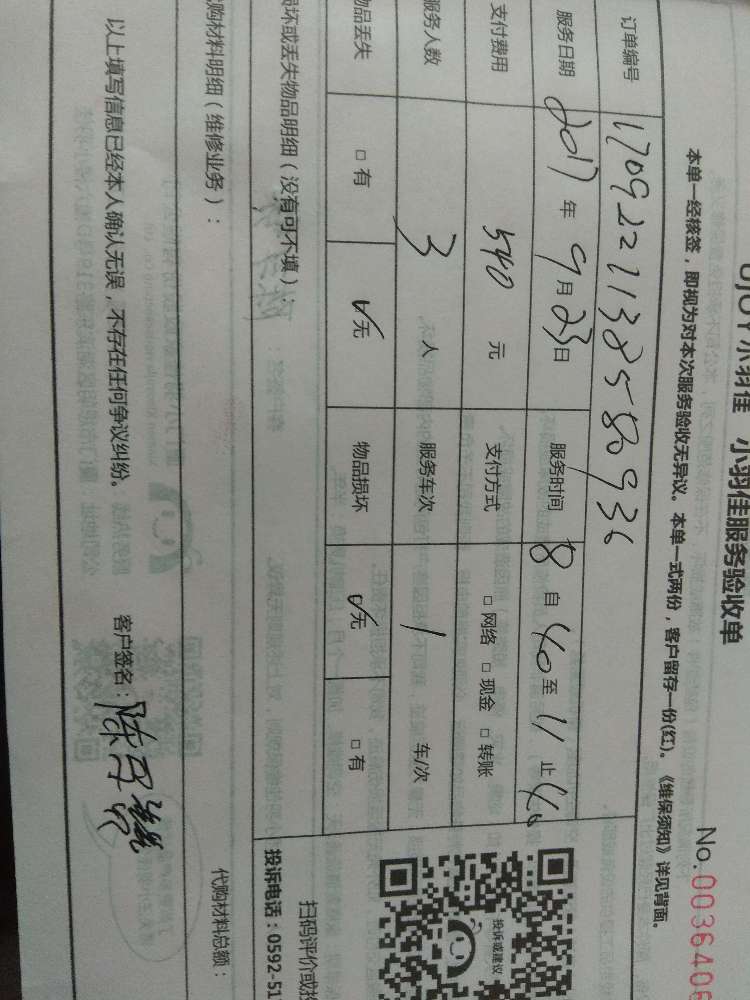 小羽佳 小羽佳服务验收单
No.0036406
本单一经核签，即视为对本次服务验收无异议。本单一式两份，客户留存一份(红)。《维保须知》详见背面。
订单编号 1709221138580936
服务日期 2017年9月23日 服务时间 8自40至11止40
支付费用 540元 支付方式 □网络 □现金 □转账
服务人数 3人 服务车次 1车/次
物品丢失 □有 ☑无 物品损坏 ☑无 □有
损坏或丢失物品明细（没有可不填）：
代购材料明细（维修业务）：
代购材料总额：
投诉或建议
扫码评价或投
投诉电话：0592-51
以上填写信息已经本人确认无误，不存在任何争议纠纷。 客户签名：